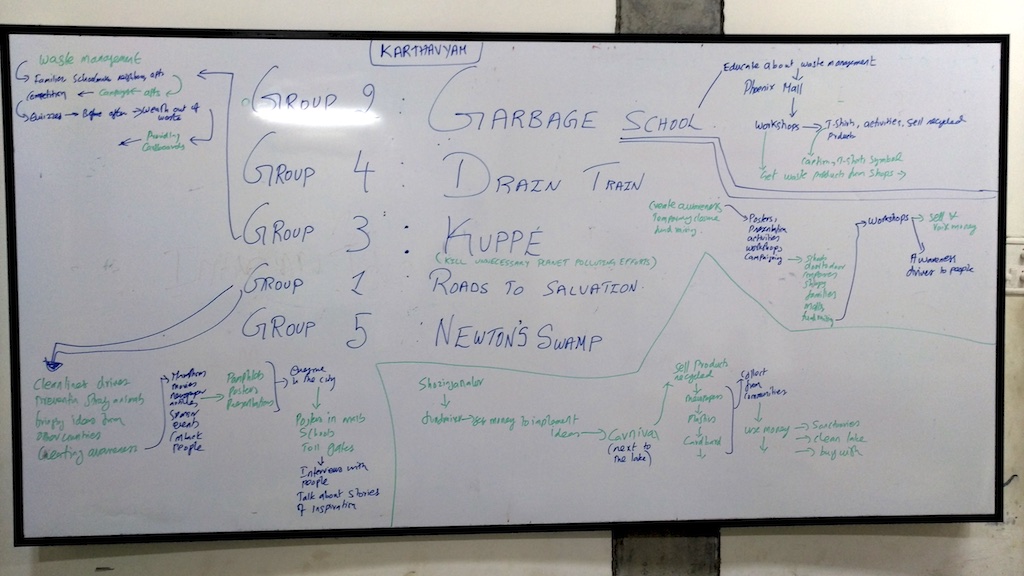 KARTHAVYAM
Waste management
Families Schoolmate neighbors, apts
Campaign apts
Quizzes → Before after → Wealth out of
waste
Providing
Cardboards
GROUP 2 : GARBAGE SCHOOL
GROUP 4 : DRAIN TRAIN
GROUP 3 : KUPPÉ
(KILL UNNECESSARY PLANET POLLUTING EFFORTS)
GROUP 1 : ROADS TO SALVATION
GROUP 5 : NEWTON'S SWAMP
Educate about waste management
Phoenix Mall
Workshops → T-Shirts, activities, sell recycled
Products
Caption, T-Shirts Symbol
Get waste products from shops →
Create awareness
Temporary closure
fund raising
Posters,
Presentation
activities
workshops
Campaigning
door to door
families
malls
fundraising
Workshops → Sell &
raise money
Awareness
drives to people
Cleanliness drives
Prevention Stray animals
Bringing ideas from
other countries
Creating awareness
Marathons
movies
newspaper
articles
events
Contact
People
Pamphlets
Posters
Presentations
in the city
Posters in malls
Schools
Toll gates
Interviews with
people
Talk about stories
of inspiration
Shozinganaler
fundraiser → get money to implement
Ideas → Carnival
(next to
the lake)
Sell Products
recycled
Newspapers
Plastics
Cardboard
Collect
from
communities
use money → Sanctuaries
→ clean lake
→ buy with